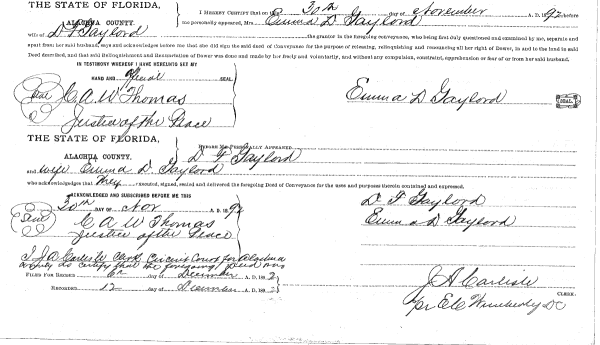 THE STATE OF FLORIDA,
ALACHUA COUNTY.
I HEREBY CERTIFY That on the 30th day of November A. D. 1892 before
me personally appeared, Mrs. Emma D. Gaylord
wife of D F Gaylord the grantor in the foregoing conveyance, who being first duly questioned and examined by me, separate and
apart from her said husband, says and acknowledges before me that she did sign the said deed of Conveyance for the purpose of releasing, relinquishing and renouncing all her right of Dower, in and to the land in said
Deed described, and that said Relinquishment and Renunciation of Dower was done and made by her freely and voluntarily, and without any compulsion, constraint, apprehension or fear of or from her said husband.
IN TESTIMONY WHEREOF I HAVE HEREUNTO SET MY
HAND AND Official SEAL
Seal C A W Thomas
Justice of the Peace
Emma D Gaylord SEAL
THE STATE OF FLORIDA,
ALACHUA COUNTY.
BEFORE ME PERSONALLY APPEARED, D F Gaylord
and wife Emma D. Gaylord
who acknowledges that They executed, signed, sealed and delivered the foregoing Deed of Conveyance for the uses and purposes therein contained and expressed.
ACKNOWLEDGED AND SUBSCRIBED BEFORE ME THIS
30th DAY OF Nov A. D. 1892
D. F Gaylord
Seal C A W Thomas
Justice of the Peace
Emma D Gaylord
I J A Carlisle Clerk Circuit Court for Alachua
County do certify that the foregoing Deed was
FILED FOR RECORD 6th day of December A. D. 1892
RECORDED 12 day of December A. D. 1892
J A Carlisle
CLERK.
pr E C Wimberly DC